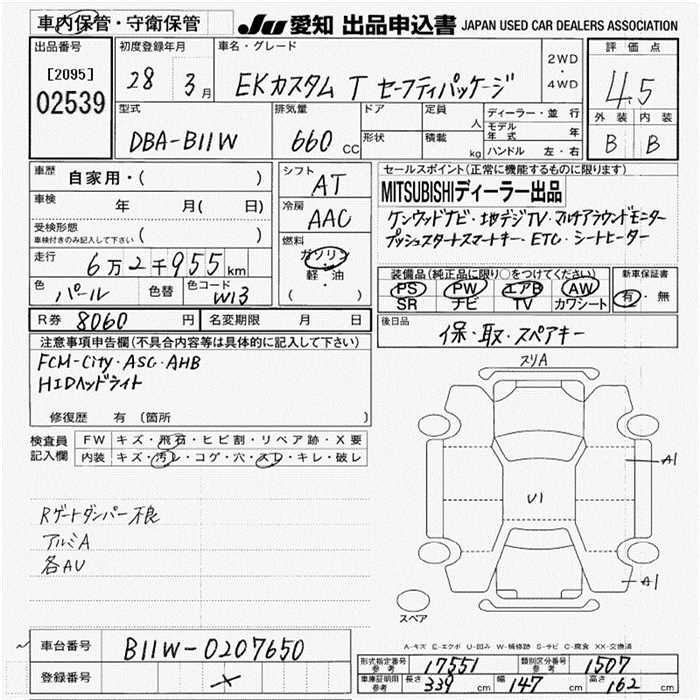 車内保管・守衛保管
JU 愛知 出品申込書 JAPAN USED CAR DEALERS ASSOCIATION
出品番号
[2095]
02539
初度登録年月
28 3月
車名・グレード
EKカスタム T セーフティパッケージ
2WD
・
4WD
評価点
4.5
外装 内装
B B
型式
DBA-B11W
排気量
660 CC
ドア
形状
定員
人
積載
kg
ディーラー・並行
モデル年式 年
ハンドル 左・右
車歴
自家用・( )
車検
年 月( 日)
受検形態
車検付きのみ記入して下さい ( )
走行
6万2千955km
色
パール
色替
色コード
W13
シフト
AT
冷房
AAC
燃料
ガソリン
軽・油
( )
セールスポイント(正常に機能するものに限ります)
MITSUBISHIディーラー出品
ケンウッドナビ・地デジTV・マルチアラウンドモニター
プッシュスタートスマートキー・ETC・シートヒーター
装備品(純正品に限り○をつけてください)
PS PW エアB AW
SR ナビ TV カワシート
新車保証書
有・無
R券 8060 円
名変期限 月 日
後日品
保・取・スペアキー
注意事項申告欄(不具合内容等は具体的に記入して下さい)
FCM-City・ASC・AHB
HIDヘッドライト
修復歴 有 (箇所 )
検査員記入欄
FW キズ・飛石・ヒビ割・リペア跡・X要
内装 キズ・汚レ・コゲ・穴・スレ・キレ・破レ
Rゲートダンパー不良
アルミA
各AU
スリA
A1
U1
A1
スペア
A-キズ E-エクボ U-凹み W-補修跡 S-サビ C-腐食 XX-交換済
車台番号 B11W-0207650
登録番号
形式指定番号 参考 17551
類別区分番号 参考 1507
車庫証明用 参考 長さ 339 cm 幅 147 cm 高さ 162 cm